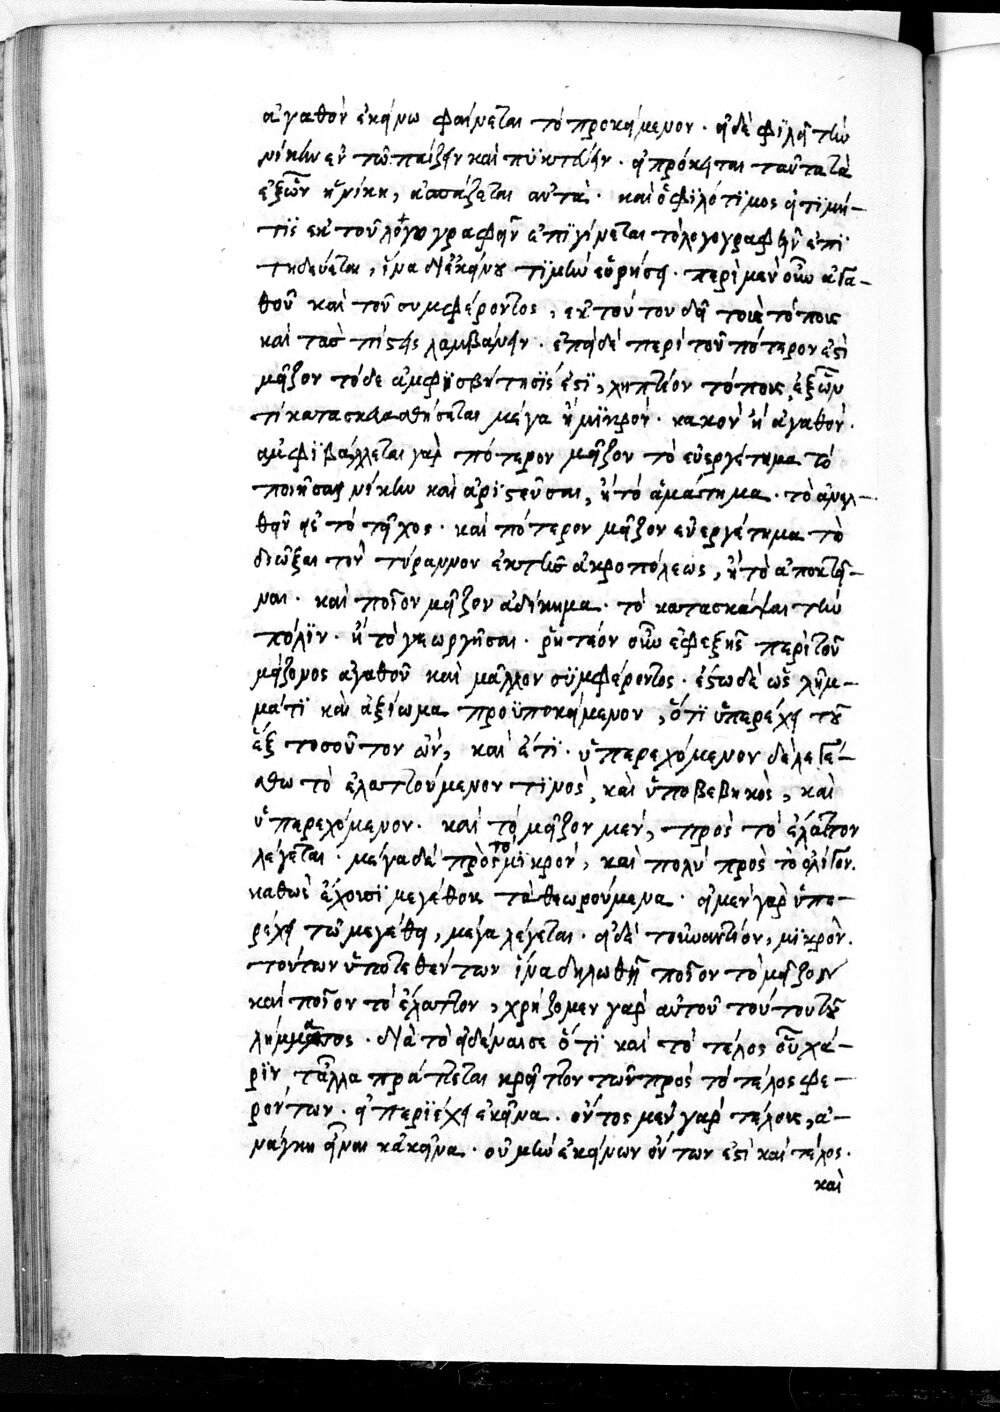 ἀγαθὸν ἐκείνω φαίνεται τὸ προκείμενον. εἰ δὲ φιλεῖ τὴν
νίκην ἐν τῶ παίζειν καὶ πυκτεύειν. εἰ πρόκειται ταῦτα τὰ
ἐξ ὧν ἡ νίκη, ἀσπάζεται αὐτά. καὶ ὁ φιλότιμος εἰ τιμή
τις ἐκ τοῦ λόγους γραφεῖν ἐπιγίνεται τὸ λογογραφεῖν ἐπι
τηδεύεται, ἵνα δι' ἐκείνου τιμὴν εὑρήσει. περὶ μὲν οὖν ἀγα-
θοῦ καὶ τοῦ συμφέροντος, ἐκ τούτου δεῖ τοὺς τόπους
καὶ τὰς πίστεις λαμβάνειν. ἐπεὶ δὲ περὶ τοῦ πότερον ἐστὶ
μεῖζον τόδε ἀμφισβήτησίς ἐστι, ληπτέον τόπους, ἐξ ὧν
τὶ κατασκευασθήσεται μέγα ἢ μικρόν. κακὸν ἢ ἀγαθόν.
ἀμφιβάλλεται γὰρ πότερον μεῖζον τὸ εὐεργέτημα τὸ
ποιῆσαι νίκην καὶ ἀριστεῦσαι, ἢ τὸ ἁμάρτημα. τὸ ἀνελ-
θεῖν εἰς τὸ τεῖχος. καὶ πότερον μεῖζον εὐεργέτημα τὸ
διῶξαι τὸν τύραννον ἐκ τῆς ἀκροπόλεως, ἢ τὸ ἀποκτεῖ-
ναι. καὶ ποῖον μεῖζον ἀδίκημα. τὸ κατασκάψαι τὴν
πόλιν. ἢ τὸ γεωργῆσαι. ῥητέον οὖν ἐφεξῆς περὶ τοῦ
μείζονος ἀγαθοῦ καὶ μᾶλλον συμφέροντος. ἔστω δὲ ὡς λῆμ-
μά τι καὶ ἀξίωμα προϋποκείμενον, ὅτι ὑπερέχει τὸ
ἓξ τοσοῦτον ὂν, καὶ ἔτι. ὑπερεχόμενον δὲ λεγέ-
σθω τὸ ἐλαττούμενον τινὸς, καὶ ὑποβεβηκὸς, καὶ
ὑπερεχόμενον. καὶ τὸ μεῖζον μὲν, πρὸς τὸ ἔλαττον
λέγεται. μέγα δὲ πρὸς τὸ μικρὸν, καὶ πολὺ πρὸς τὸ ὀλίγον.
καθὼς ἔχουσι μεγέθους τὰ θεωρούμενα. εἰ μὲν γὰρ ὑπε-
ρέχει τῶ μεγέθει, μέγα λέγεται. εἰ δὲ τοὐναντίον, μικρόν.
τούτων ὑποτεθέντων ἵνα δηλωθῆ ποῖον τὸ μεῖζον
καὶ ποῖον τὸ ἔλαττον, χρήζομεν γὰρ αὐτοῦ τούτου τοῦ
λήμματος. διὰ τὸ εἰδέναι σε ὅτι καὶ τὸ τέλος οὗ χά-
ριν τἄλλα πράττεται κρεῖττον τῶν πρὸς τὸ τέλος φε-
ρόντων. εἰ περιέχει ἐκεῖνα. ὄντος μὲν γὰρ τέλους, ἀ-
νάγκη εἶναι κἀκεῖνα. οὐ μὴν ἐκείνων ὄντων ἐστὶ καὶ τέλος.
καὶ